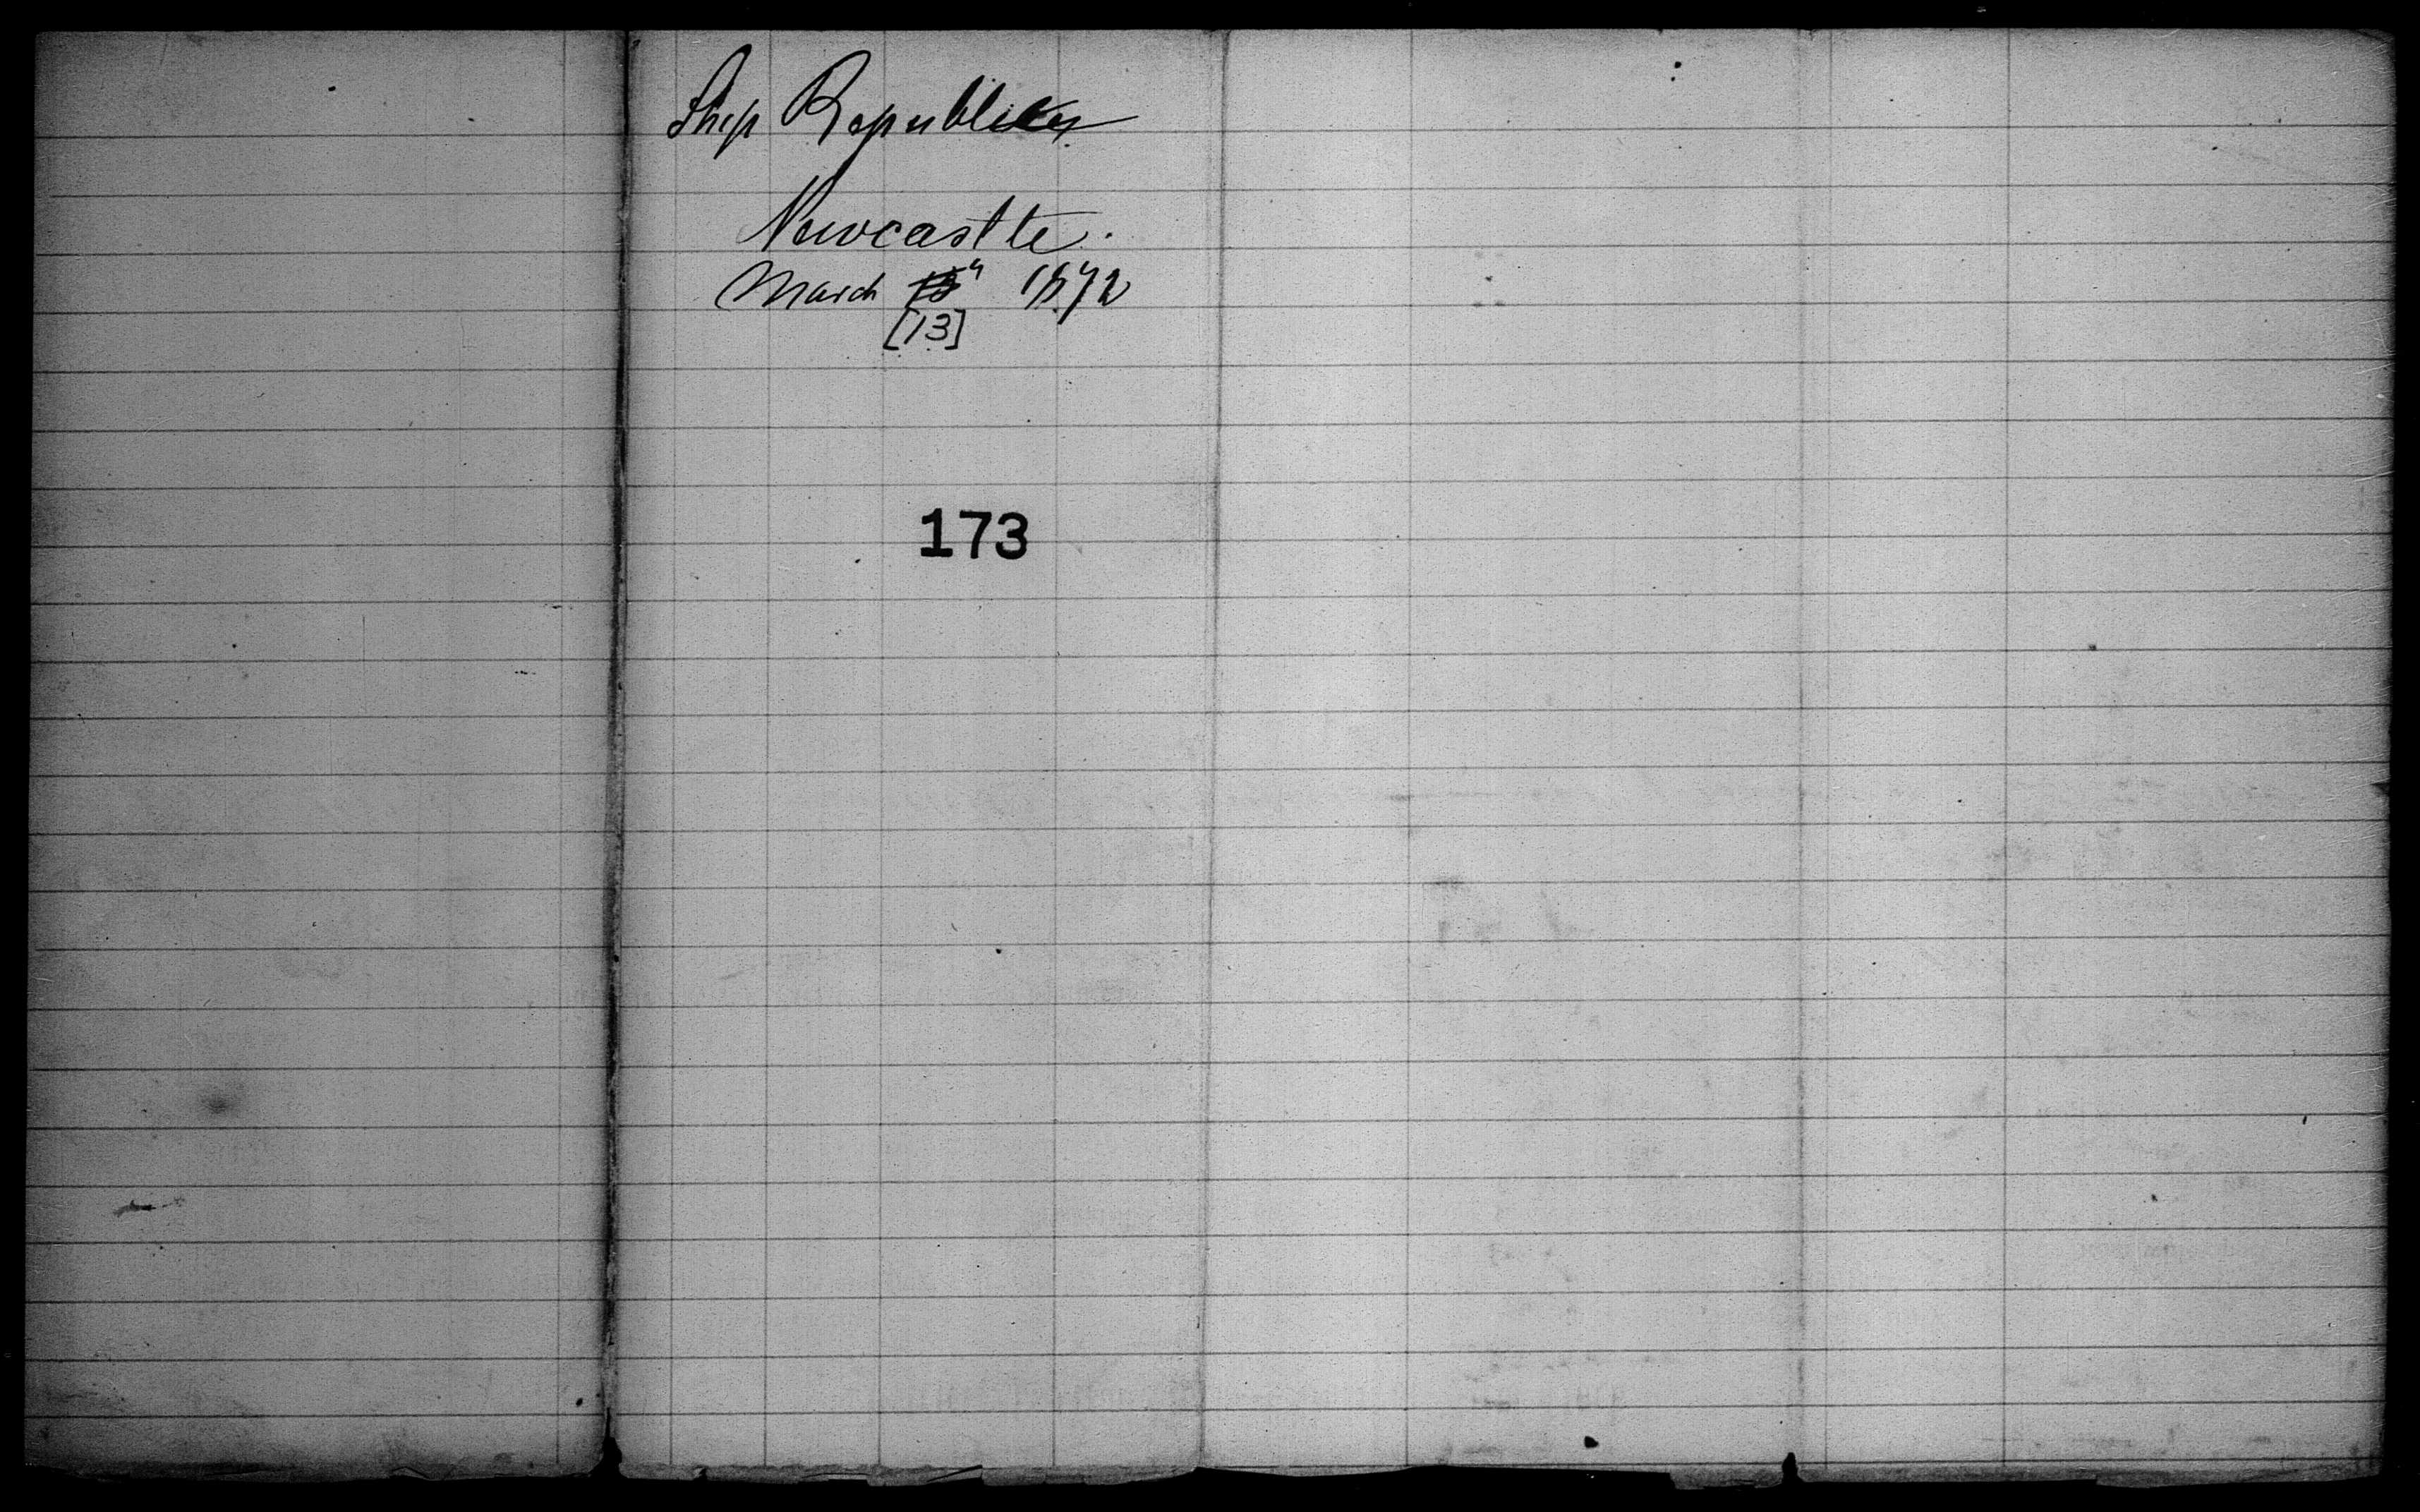 Ship Republic
Newcastle.
March 13" 1872
[13]
173